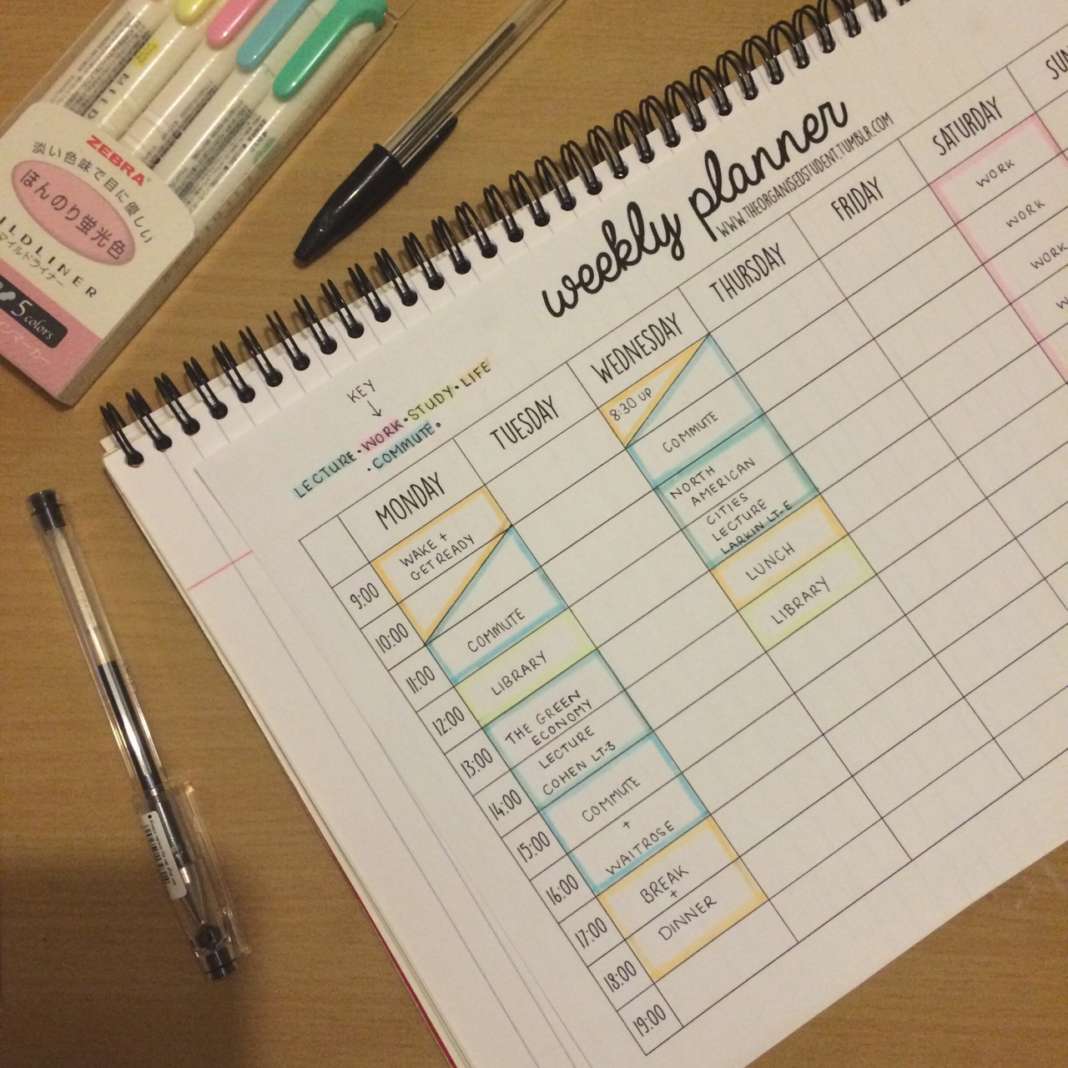 ZEBRA
淡い色味で目に優しい
ほんのり蛍光色
ILDLINER
マイルドライナー
5 colors
weekly planner
WWW.THEORGANISEDSTUDENT.TUMBLR.COM
KEY
LECTURE • WORK • STUDY • LIFE
• COMMUTE •
MONDAY
TUESDAY
WEDNESDAY
THURSDAY
FRIDAY
SATURDAY
SUN
9:00
10:00
11:00
12:00
13:00
14:00
15:00
16:00
17:00
18:00
19:00
WAKE +
GET READY
COMMUTE
LIBRARY
THE GREEN
ECONOMY
LECTURE
COHEN LT-3
COMMUTE
+
WAITROSE
BREAK
+
DINNER
8:30 UP
COMMUTE
NORTH
AMERICAN
CITIES
LECTURE
LARKIN LT-E
LUNCH
LIBRARY
WORK
WORK
WORK
W